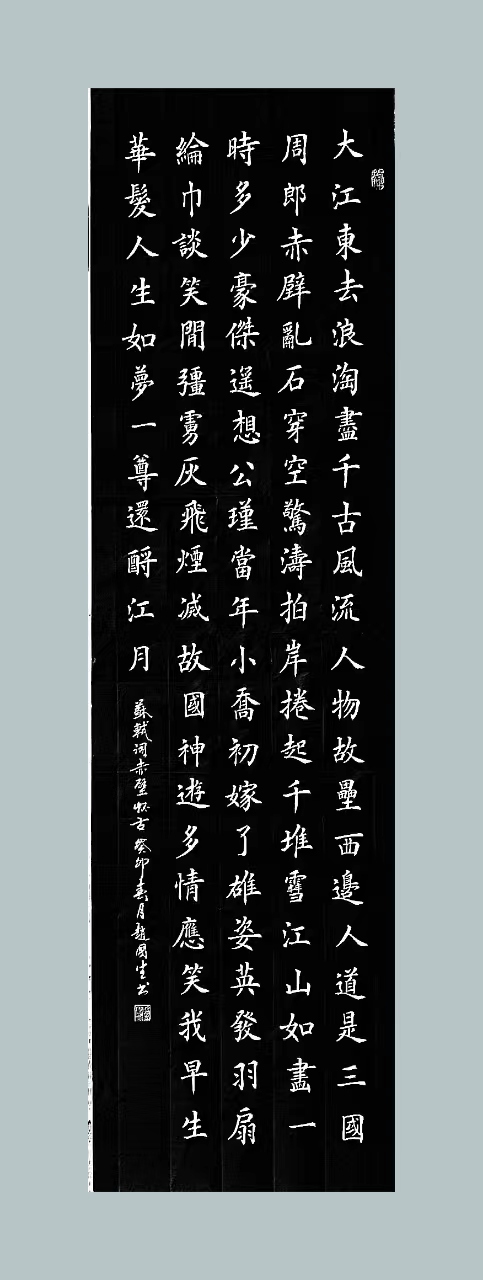 大江東去浪淘盡千古風流人物故壘西邊人道是三國
周郎赤壁亂石穿空驚濤拍岸捲起千堆雪江山如畫一
時多少豪傑遥想公瑾當年小喬初嫁了雄姿英發羽扇
綸巾談笑間彊虜灰飛煙滅故國神遊多情應笑我早生
華髮人生如夢一尊還酹江月
蘇軾词赤壁怀古癸卯春月趙國生书